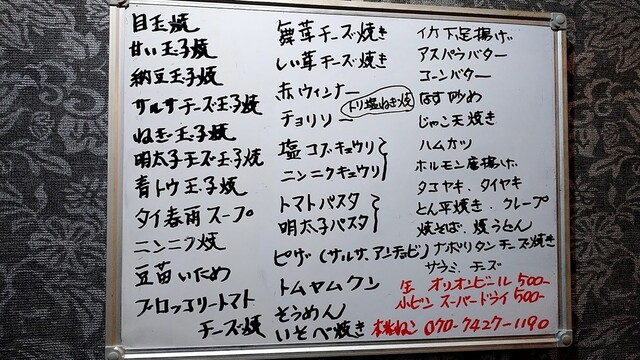 目玉焼
甘い玉子焼
納豆玉子焼
サルサチーズ玉子焼
ねぎ玉子焼
明太子チーズ玉子焼
青トウ玉子焼
タイ春雨スープ
ニンニク焼
豆苗いため
ブロッコリートマト
チーズ焼
舞茸チーズ焼き
しい茸チーズ焼き
赤ウィンナー
トリ塩ねぎ焼
チョリソー
塩コブキュウリ
ニンニクキュウリ
トマトパスタ
明太子パスタ
ピザ(サルサ、アンチョビ)
トムヤムクン
そうめん
いそべ焼き
イカ下足揚げ
アスパラバター
コーンバター
はす炒め
じゃこ天焼き
ハムカツ
ホルモン唐揚げ
タコヤキ、タイヤキ
とん平焼き、クレープ
焼そば、焼うどん
ナポリタンチーズ焼き
サラミ、チーズ
生 オリオンビール 500-
小ビン スーパードライ 500-
070-7427-1190